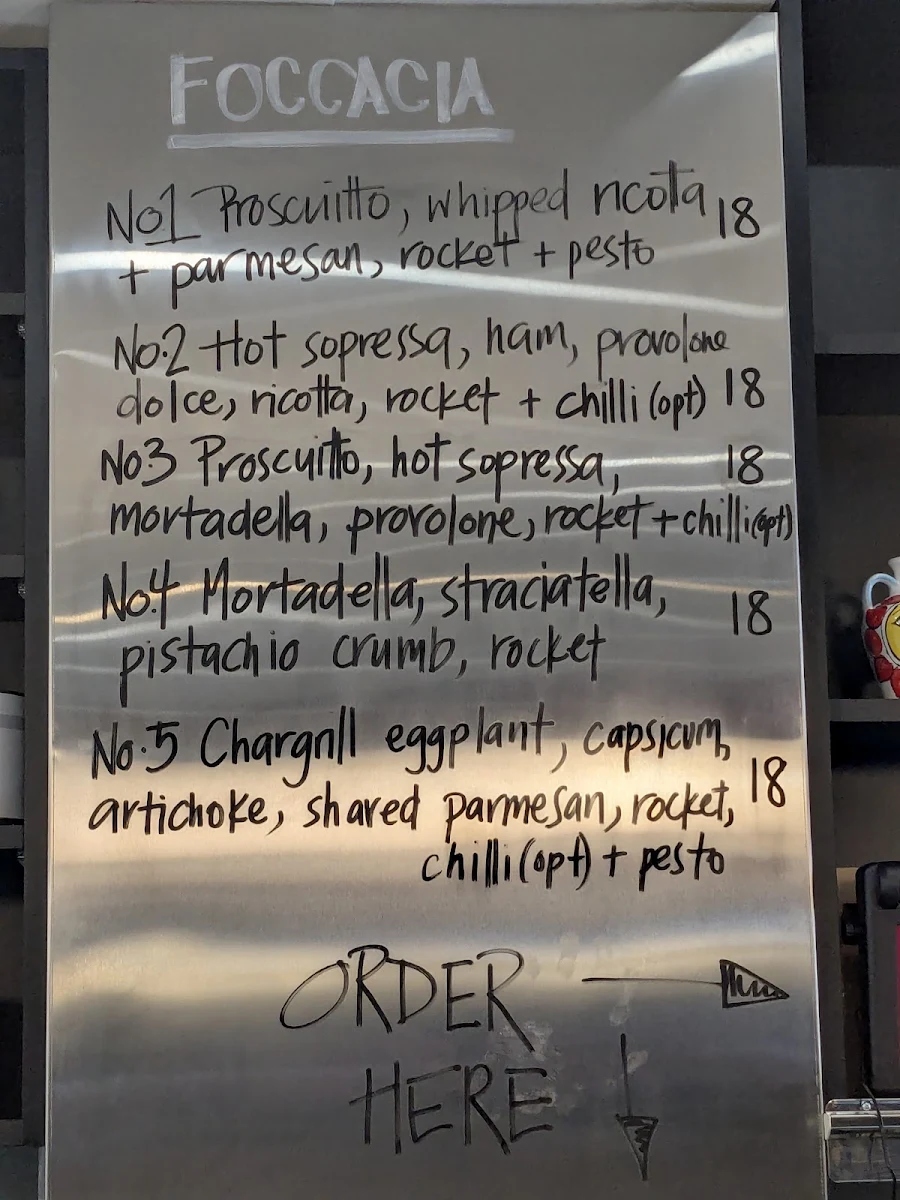 FOCCACIA
No1 Proscuitto, whipped ricotta 18
+ parmesan, rocket + pesto
No.2 Hot sopressa, ham, provolone
dolce, ricotta, rocket + chilli (opt) 18
No3 Proscuitto, hot sopressa, 18
mortadella, provolone, rocket + chilli (opt)
No.4 Mortadella, straciatella, 18
pistachio crumb, rocket
No.5 Chargrill eggplant, capsicum,
artichoke, shared parmesan, rocket, 18
chilli (opt) + pesto
ORDER
HERE